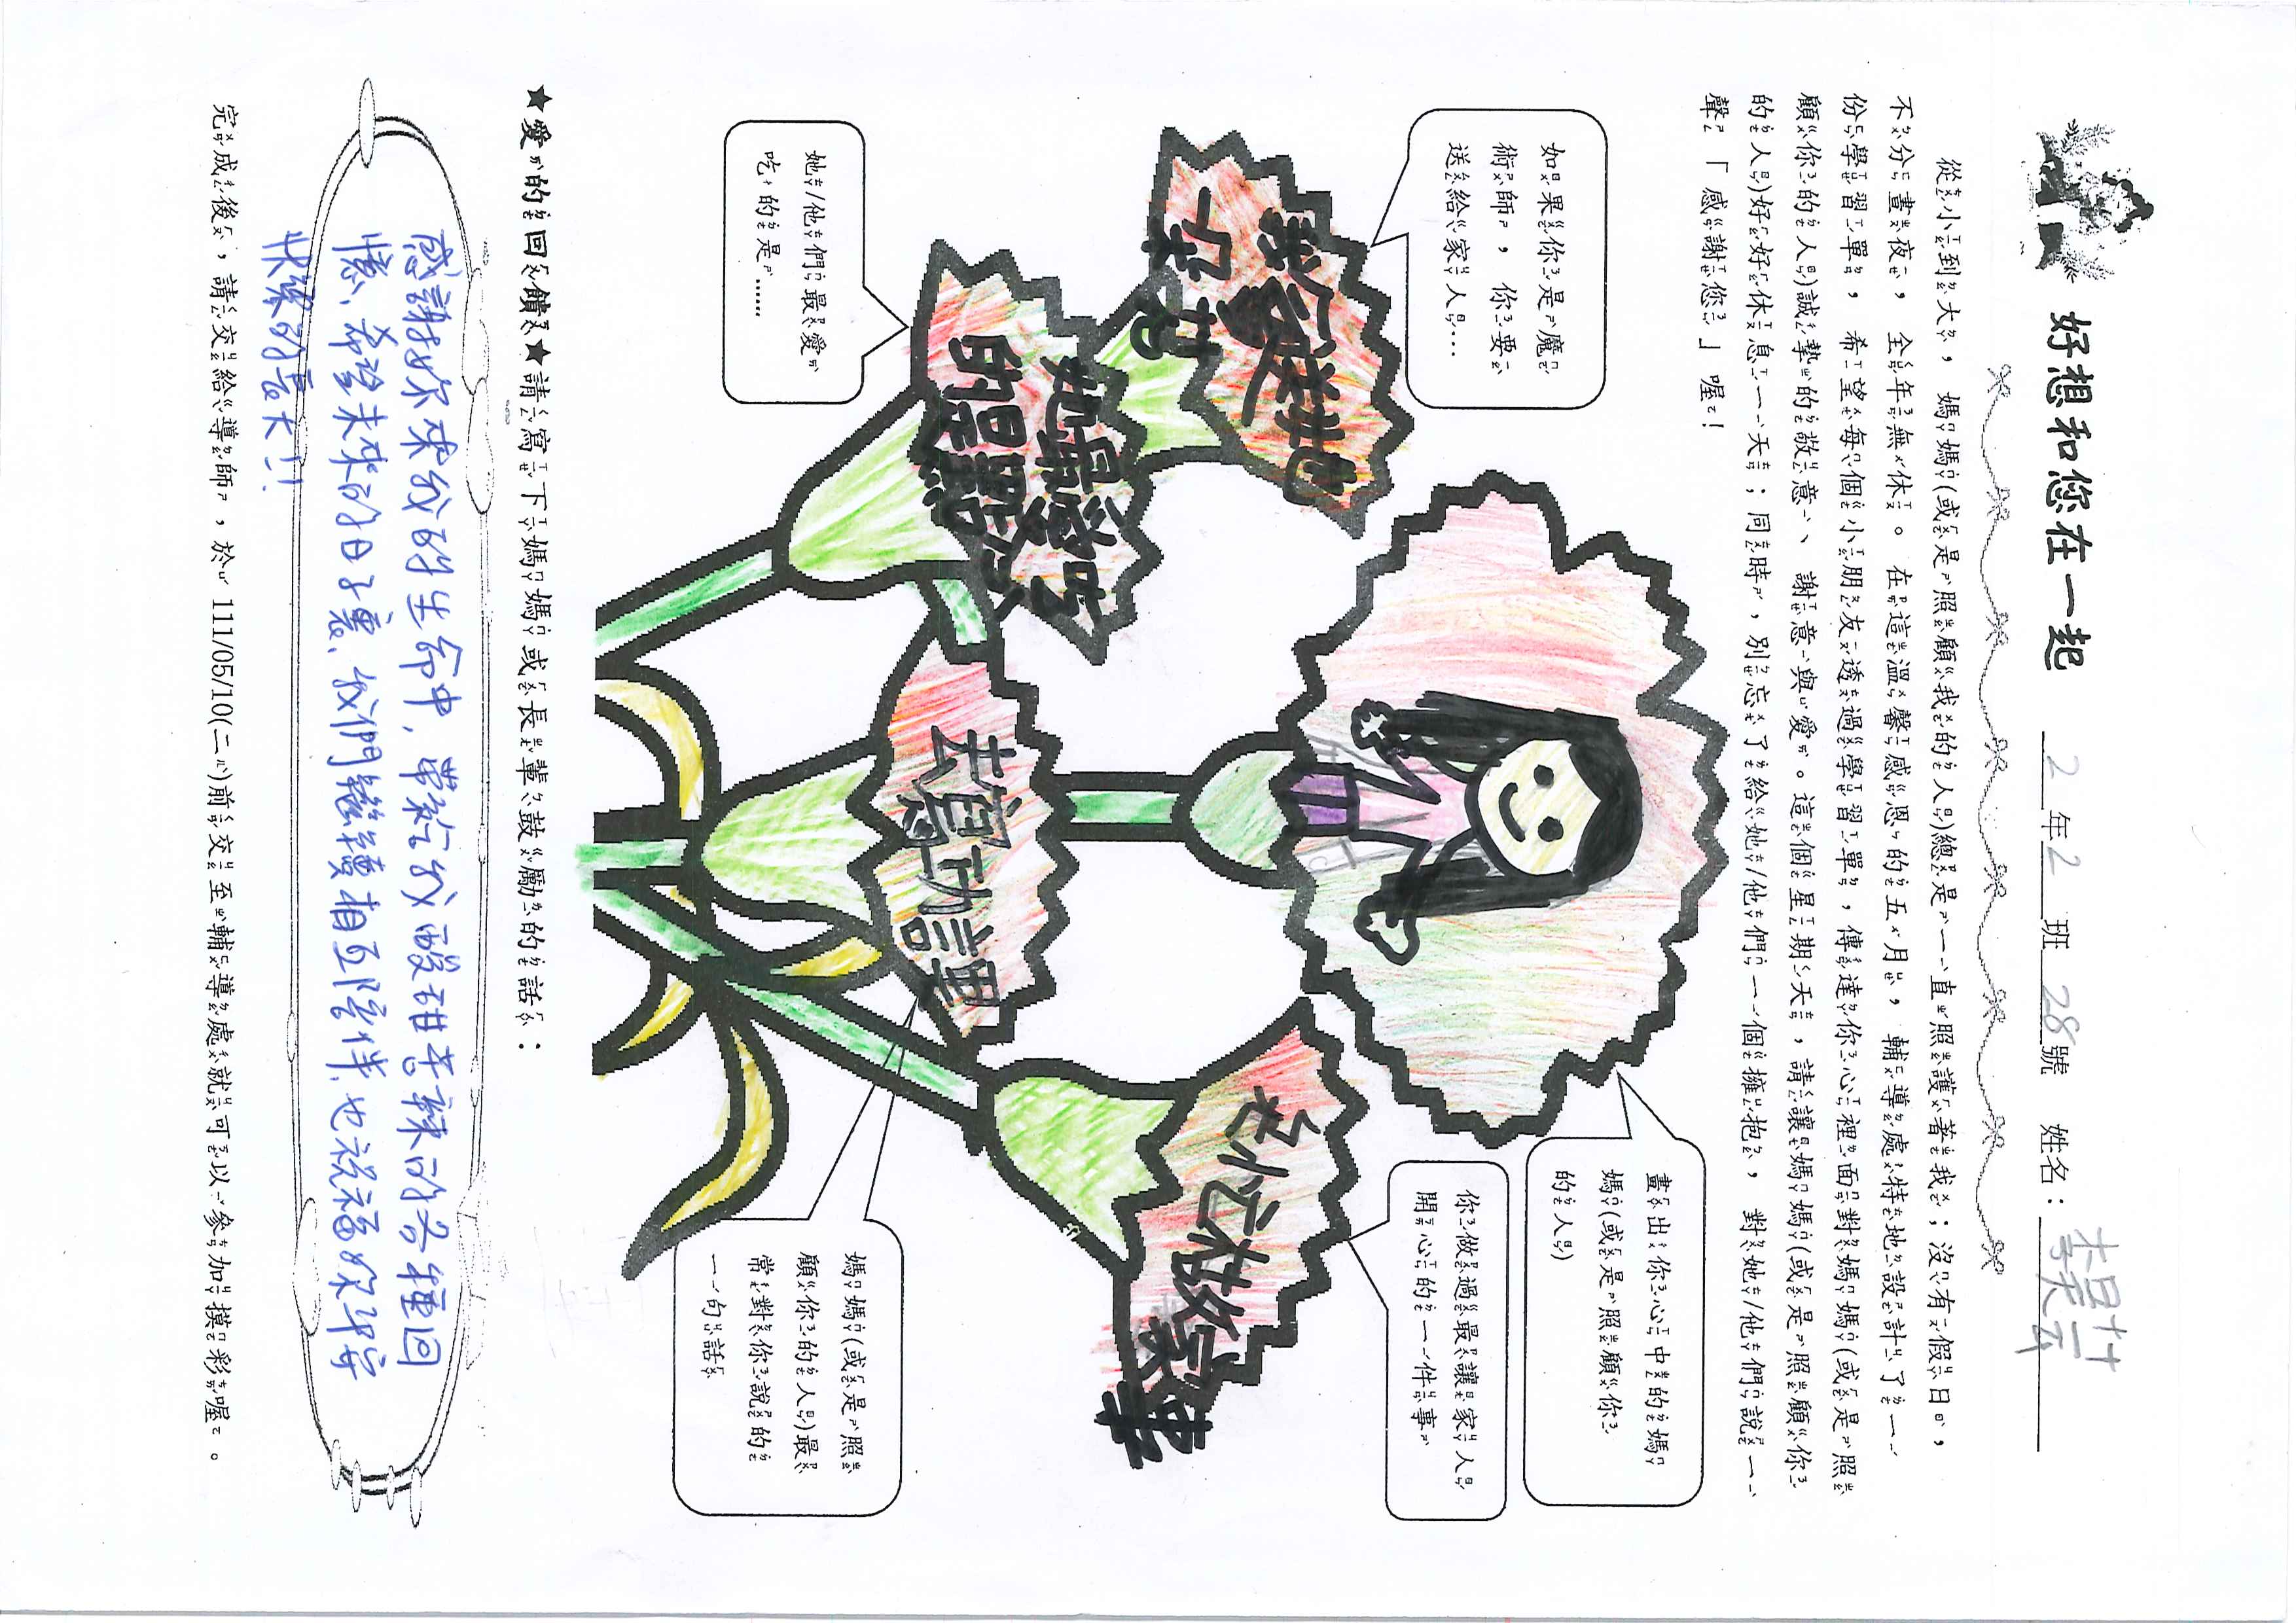 好想和您在一起 2年2班28號 姓名：
從小到大，媽媽(或是照顧我的人)總是一直照護著我；沒有假日，
不分晝夜，全年無休。在這溫馨感恩的五月，輔導處特地設計了一
份學習單，希望每個小朋友透過學習單，傳達你心裡面對媽媽(或是照
顧你的人)誠摯的敬意、謝意與愛。這個星期天，請讓媽媽(或是照顧你
的人)好好休息一天；同時，別忘了給她/他們一個擁抱，對她/他們說一
聲「感謝您」喔！
如果你是魔
術師，你要
送給家人…
我要送她
一朵花
畫出你心中的媽
媽(或是照顧你
的人)
你做過最讓家人
開心的一件事
她/他們最愛
吃的是……
她最愛吃
的是點心
去寫功課
媽媽(或是照
顧你的人)最
常對你說的
一句話
★愛的回饋★請寫下媽媽或長輩鼓勵的話：
感謝妳來我的生命中，帶給我酸甜苦辣的各種回
憶、希望未來的日子裏、我們繼續相互陪伴、也祝福妳平安
快樂的長大!!
完成後，請交給導師，於 111/05/10(二)前交至輔導處就可以參加摸彩喔。